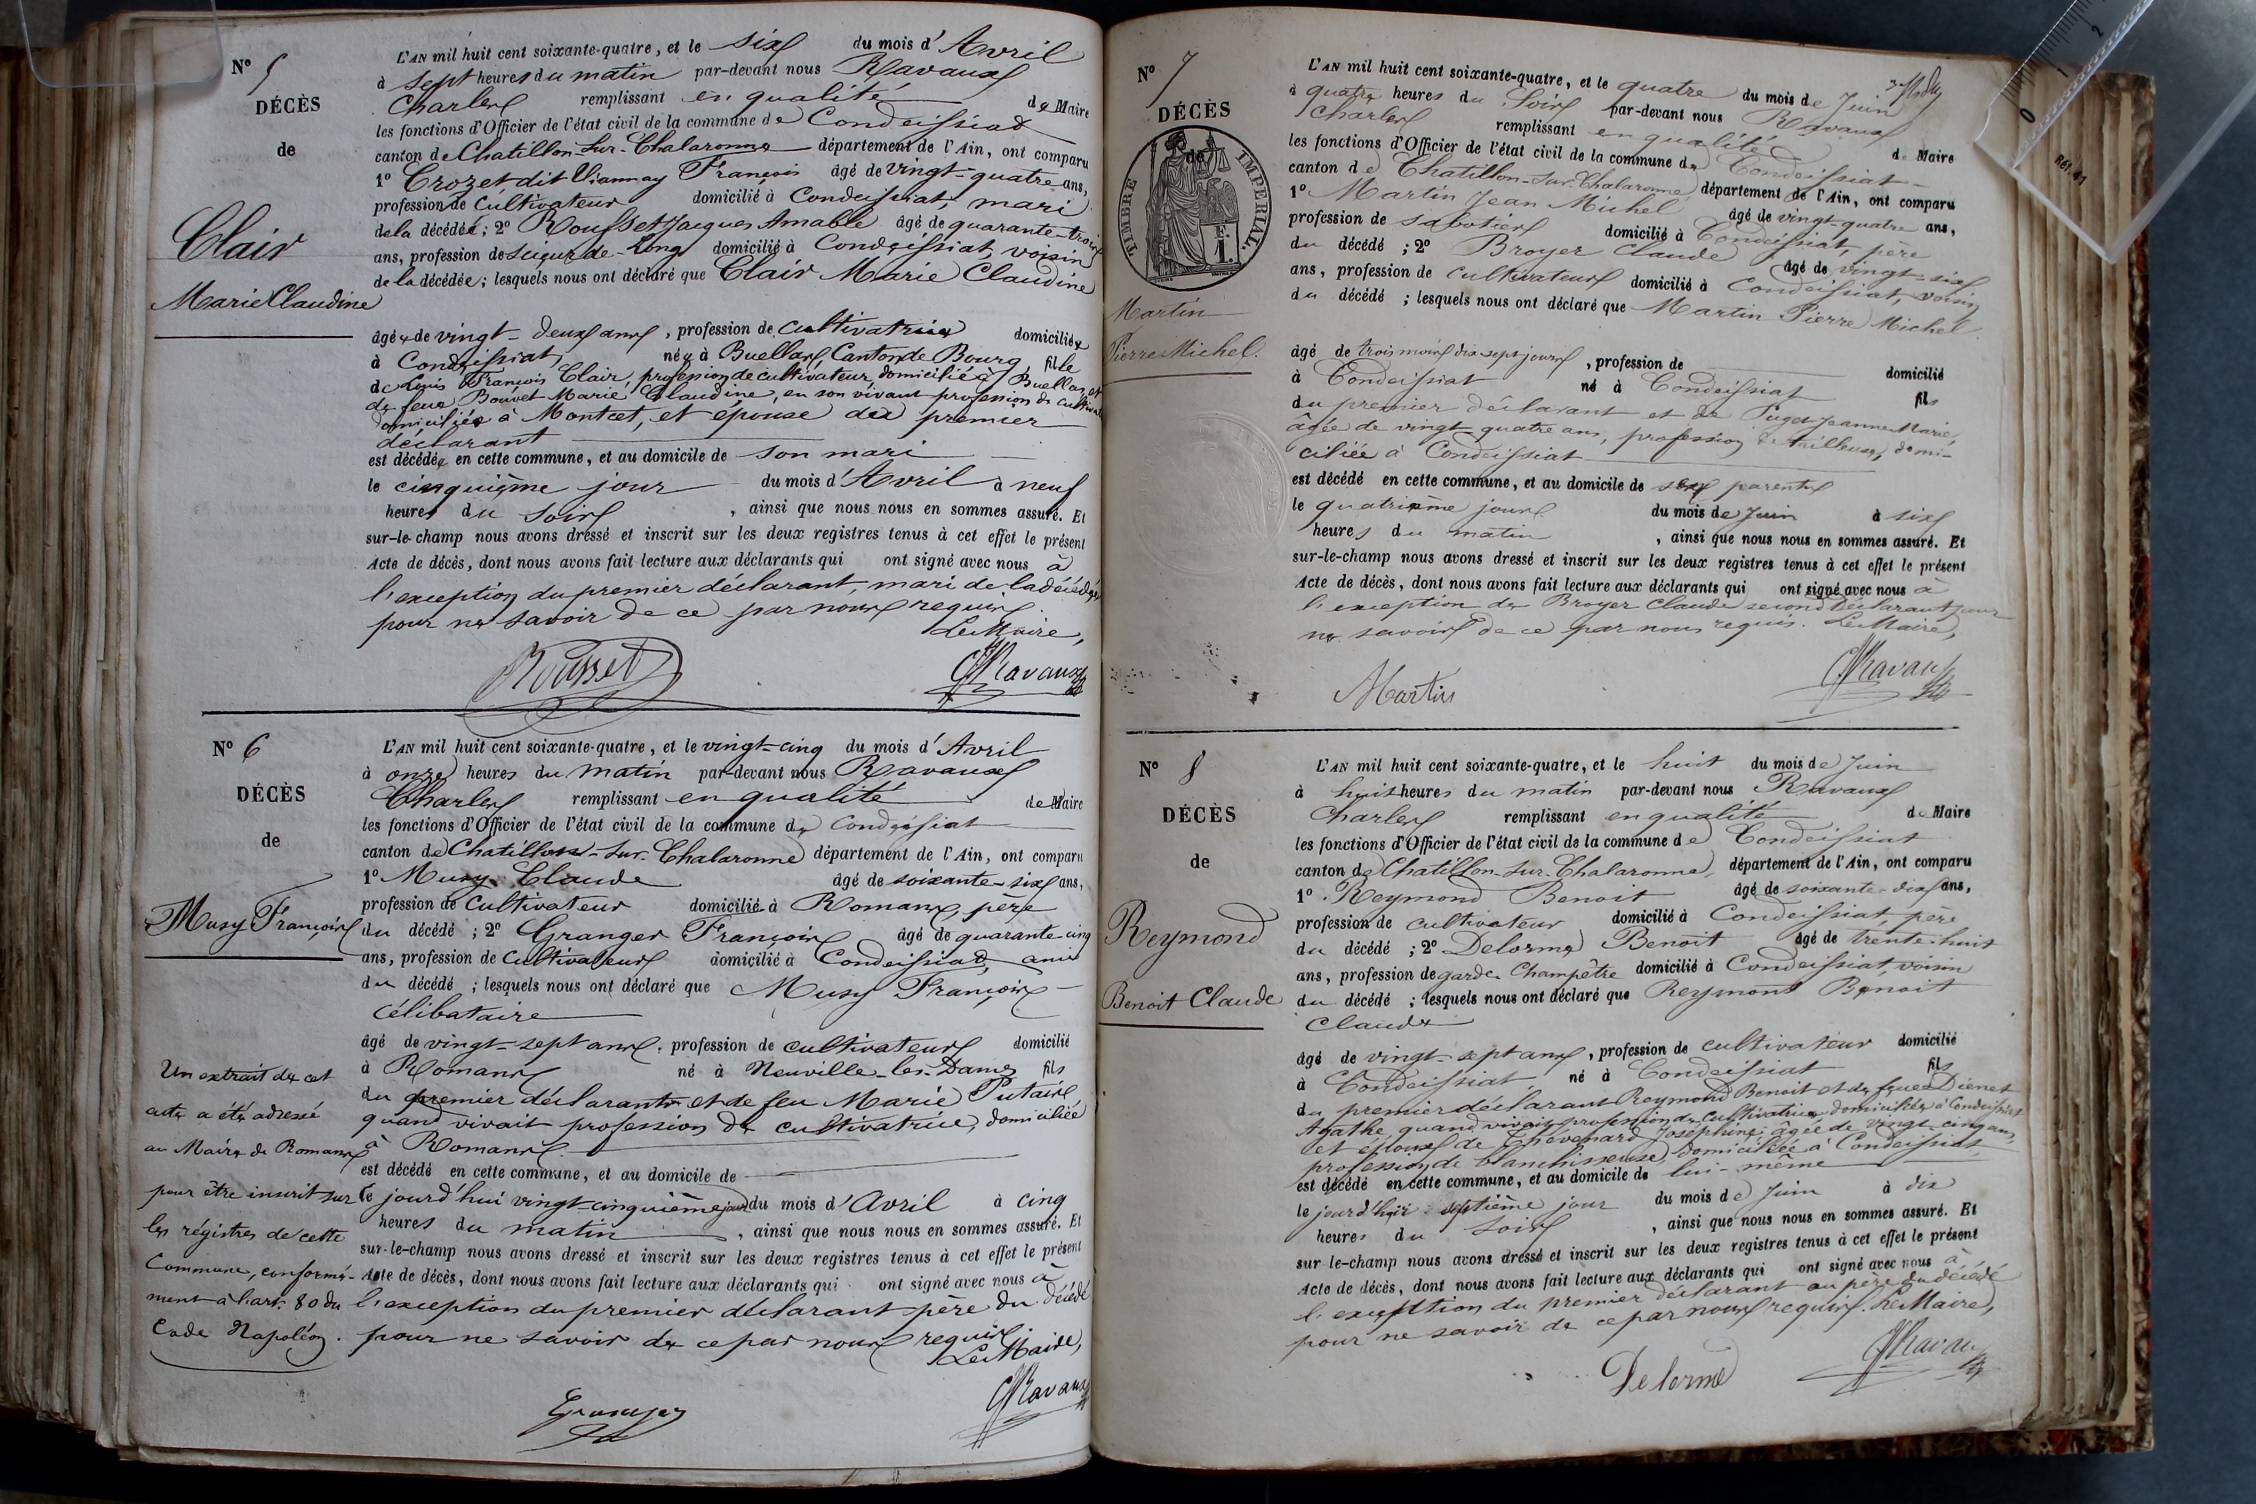 N° 5
DÉCÈS
de
Clair
Marie Claudine
L'AN mil huit cent soixante-quatre, et le six du mois d'Avril
à sept heures du matin par-devant nous Ravaux
Charles remplissant en qualité de Maire
les fonctions d'Officier de l'état civil de la commune de Condeissiat
canton de Chatillon-sur-Chalaronne département de l'Ain, ont comparu
1° Crozet dit Viannay François âgé de vingt-quatre ans,
profession de cultivateur domicilié à Condeissiat, mari
de la décédée; 2° Rousset Jacques Amable âgé de quarante-trois
ans, profession de scieur de-long domicilié à Condeissiat, voisin
de la décédée; lesquels nous ont déclaré que Clair Marie Claudine
âgée de vingt-deux ans, profession de cultivatrice domiciliée
à Condeissiat, née à Buellas, Canton de Bourg, fille
de Louis François Clair, profession de cultivateur, domicilié à Buellas, et
de feue Bouvet Marie Claudine, en son vivant profession de
domiciliée à Montcet, et épouse du premier
déclarant
est décédée en cette commune, et au domicile de son mari
le cinquième jour du mois d'Avril à neuf
heures du soir, ainsi que nous nous en sommes assuré. Et
sur-le-champ nous avons dressé et inscrit sur les deux registres tenus à cet effet le présent
Acte de décès, dont nous avons fait lecture aux déclarants qui ont signé avec nous à
l'exception du premier déclarant, mari de la décédée
pour ne savoir de ce par nous requis.
Le Maire,
Rousset
Ravaux
N° 6
DÉCÈS
de
Musy François
Un extrait de cet
acte a été adressé
au Maire de Romans
pour être inscrit sur
les régistres de cette
Commune, conformé-
ment à l'art. 80 du
Code Napoléon.
L'AN mil huit cent soixante-quatre, et le vingt-cinq du mois d'Avril
à onze heures du matin par-devant nous Ravaux
Charles remplissant en qualité de Maire
les fonctions d'Officier de l'état civil de la commune de Condeissiat
canton de Chatillon-sur-Chalaronne département de l'Ain, ont comparu
1° Musy Claude âgé de soixante-six ans,
profession de cultivateur domicilié à Romans, père
du décédé; 2° Granger François âgé de quarante-cinq
ans, profession de cultivateur domicilié à Condeissiat, ami
du décédé; lesquels nous ont déclaré que Musy François
célibataire
âgé de vingt-sept ans, profession de cultivateur domicilié
à Romans né à Neuville-les-Dames fils
du premier déclarant et de feu Marie Putail
quand vivait profession de cultivatrice, domiciliée
à Romans
est décédé en cette commune, et au domicile de
le jourd'hui vingt-cinquième jour du mois d'Avril à cinq
heures du matin, ainsi que nous nous en sommes assuré. Et
sur-le-champ nous avons dressé et inscrit sur les deux registres tenus à cet effet le présent
Acte de décès, dont nous avons fait lecture aux déclarants qui ont signé avec nous à
l'exception du premier déclarant père du décédé
pour ne savoir de ce par nous requis.
Le Maire,
Granger
Ravaux
N° 7
DÉCÈS
de
TIMBRE IMPÉRIAL.
1 F.
Martin
Pierre Michel.
L'AN mil huit cent soixante-quatre, et le quatre du mois de Juin
à quatre heures du soir par-devant nous Ravaux
Charles remplissant en qualité de Maire
les fonctions d'Officier de l'état civil de la commune de Condeissiat
canton de Chatillon-sur-Chalaronne département de l'Ain, ont comparu
1° Martin Jean Michel âgé de vingt-quatre ans,
profession de sabotier domicilié à Condeissiat, père
du décédé; 2° Broyer Claude âgé de vingt-six
ans, profession de cultivateur domicilié à Condeissiat, voisin
du décédé; lesquels nous ont déclaré que Martin Pierre Michel
âgé de trois mois dix-sept jours, profession de domicilié
à Condeissiat né à Condeissiat fils
du premier déclarant et de Puget Jeanne Marie,
âgée de vingt quatre ans, profession de tailleuse, domi-
ciliée à Condeissiat
est décédé en cette commune, et au domicile de ses parents
le quatrième jour du mois de Juin à six
heures du matin, ainsi que nous nous en sommes assuré. Et
sur-le-champ nous avons dressé et inscrit sur les deux registres tenus à cet effet le présent
Acte de décès, dont nous avons fait lecture aux déclarants qui ont signé avec nous à
l'exception de Broyer Claude second déclarant pour
ne savoir de ce par nous requis. Le Maire,
Martin
Ravaux
N° 8
DÉCÈS
de
Reymond
Benoit Claude
L'AN mil huit cent soixante-quatre, et le huit du mois de Juin
à huit heures du matin par-devant nous Ravaux
Charles remplissant en qualité de Maire
les fonctions d'Officier de l'état civil de la commune de Condeissiat
canton de Chatillon-sur-Chalaronne, département de l'Ain, ont comparu
1° Reymond Benoit âgé de soixante-dix ans,
profession de cultivateur domicilié à Condeissiat, père
du décédé; 2° Delorme Benoit âgé de trente-huit
ans, profession de garde Champêtre domicilié à Condeissiat, voisin
du décédé; lesquels nous ont déclaré que Reymond Benoit
Claude
âgé de vingt-sept ans, profession de cultivateur domicilié
à Condeissiat, né à Condeissiat fils
du premier déclarant Reymond Benoit et de feue Dienet
Agathe quand vivait profession de cultivatrice domiciliée à Condeissiat
et époux de Thévenard Joséphine, âgée de vingt-cinq ans,
profession de blanchisseuse, domiciliée à Condeissiat
est décédé en cette commune, et au domicile de lui-même
le jourd'hui septième jour du mois de Juin à dix
heures du soir, ainsi que nous nous en sommes assuré. Et
sur-le-champ nous avons dressé et inscrit sur les deux registres tenus à cet effet le présent
Acte de décès, dont nous avons fait lecture aux déclarants qui ont signé avec nous à
l'exception du premier déclarant au père du décédé
pour ne savoir de ce par nous requis. Le Maire,
Delorme
Ravaux
0 1 2